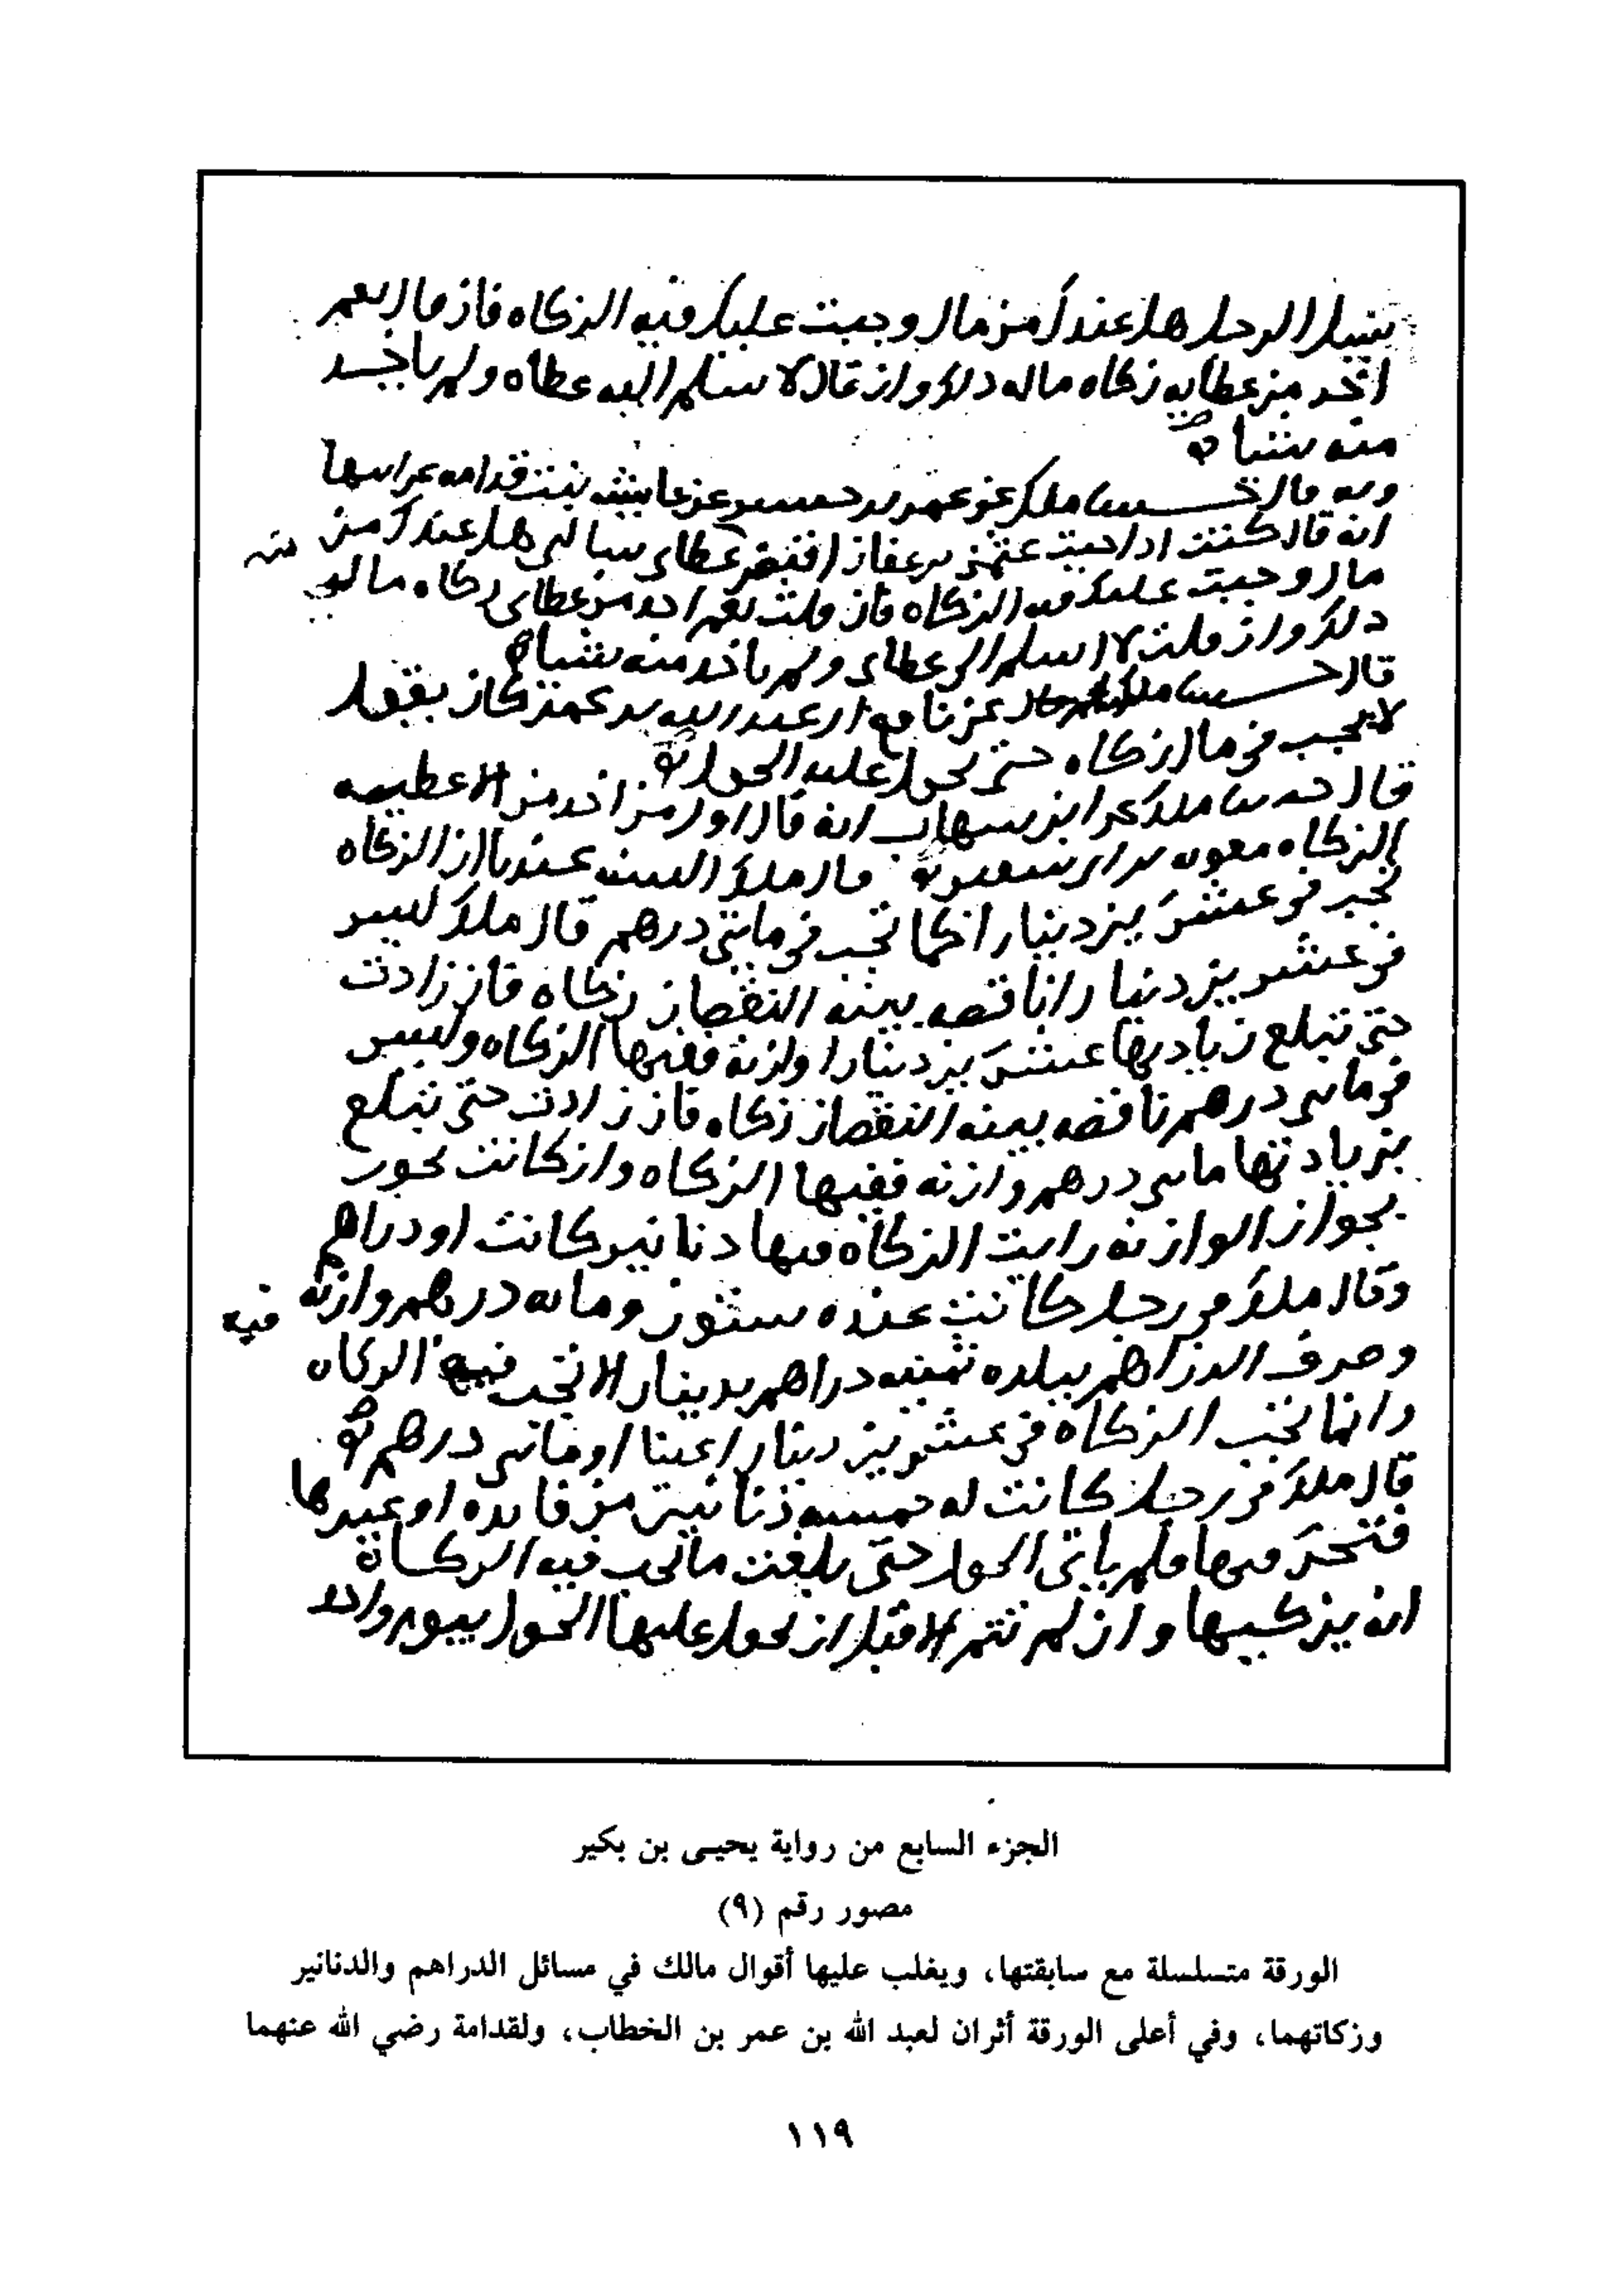 يسل الرجل هل عندك من مال وجبت عليك فيه الزكاه فان قال نعم
اخذ من عطايه زكاه ماله ذلك وان قال لا سلم اليه عطاه ولم ياخذ
منه شيا
وبه قال حدثنا ملك عن عمر بن حسين عن عايشه بنت قدامه عن ابيها
انه قال كنت اذا جيت عثمن بن عفان اقبض عطاى سالنى هل عندك من
مال وجبت عليك فيه الزكاه فان قلت نعم اخذ من عطاى زكاه مالى
ذلك وان قلت لا سلم الى عطاى ولم ياخذ منه شيا
قال حدثنا ملك عن نافع ان عبد الله بن عمر كان يقول
لا تجب فى مال زكاه حتى يحول عليه الحول
قال حدثنا ملك عن ابن شهاب انه قال اول من اخذ من الاعطيه
الزكاه معويه بن ابى سفين قال ملك السنه عندنا ان الزكاه
تجب فى عشرين دينارا كما تجب فى مايتى درهم قال ملك ليس
فى عشرين دينارا ناقصه بينه النقصان زكاه فان زادت
حتى تبلغ زيادتها عشرين دينارا وازنه ففيها الزكاه وليس
فى مايتى درهم ناقصه بينه النقصان زكاه فان زادت حتى تبلغ
بزيادتها مايتى درهم وازنه ففيها الزكاه وان كانت تجوز
بجواز الوازنه رايت الزكاه فيها دنانير كانت او دراهم
وقال ملك فى رجل كانت عنده ستون ومايه درهم وازنه
وصرف الدراهم ببلده ثمنيه دراهم بدينار لا تجب فيه الزكاه
وانما تجب الزكاه فى عشرين دينارا عينا او مايتى درهم
قال ملك فى رجل كانت له خمسه دنانير من فايده او غيرها
فتجر فيها فلم ياتى الحول حتى بلغت ما تجب فيه الزكاة
انه يزكيها وان لم تتم الا قبل ان يحول عليها الحول بيوم واحد
الجزء السابع من رواية يحيى بن بكير
مصور رقم (٩)
الورقة متسلسلة مع سابقتها، ويغلب عليها أقوال مالك في مسائل الدراهم والدنانير
وزكاتهما، وفي أعلى الورقة أثران لعبد الله بن عمر بن الخطاب، ولقدامة رضي الله عنهما
١١٩